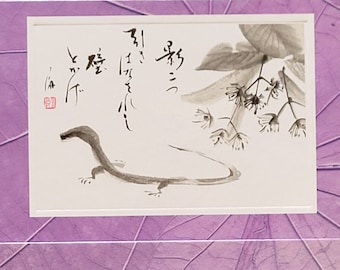 影二つ
引きはなされし
壁
とかげ